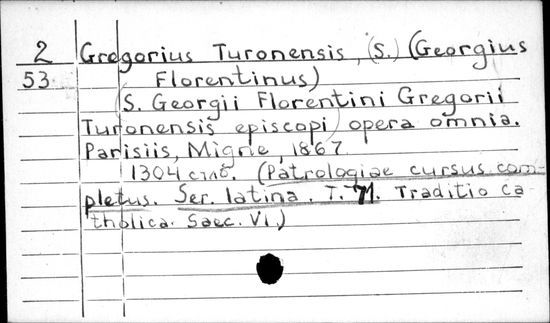 2 Gregorius Turonensis, (S.) (Georgius
53 Florentinus)
(S. Georgii Florentini Gregorii
Turonensis episcopi) opera omnia.
Parisiis, Migne, 1867.
1304 cint. (Patrologiae cursus com-
pletus. Ser. latina. T. 71. Traditio ca-
tholica. Saec. VI.)